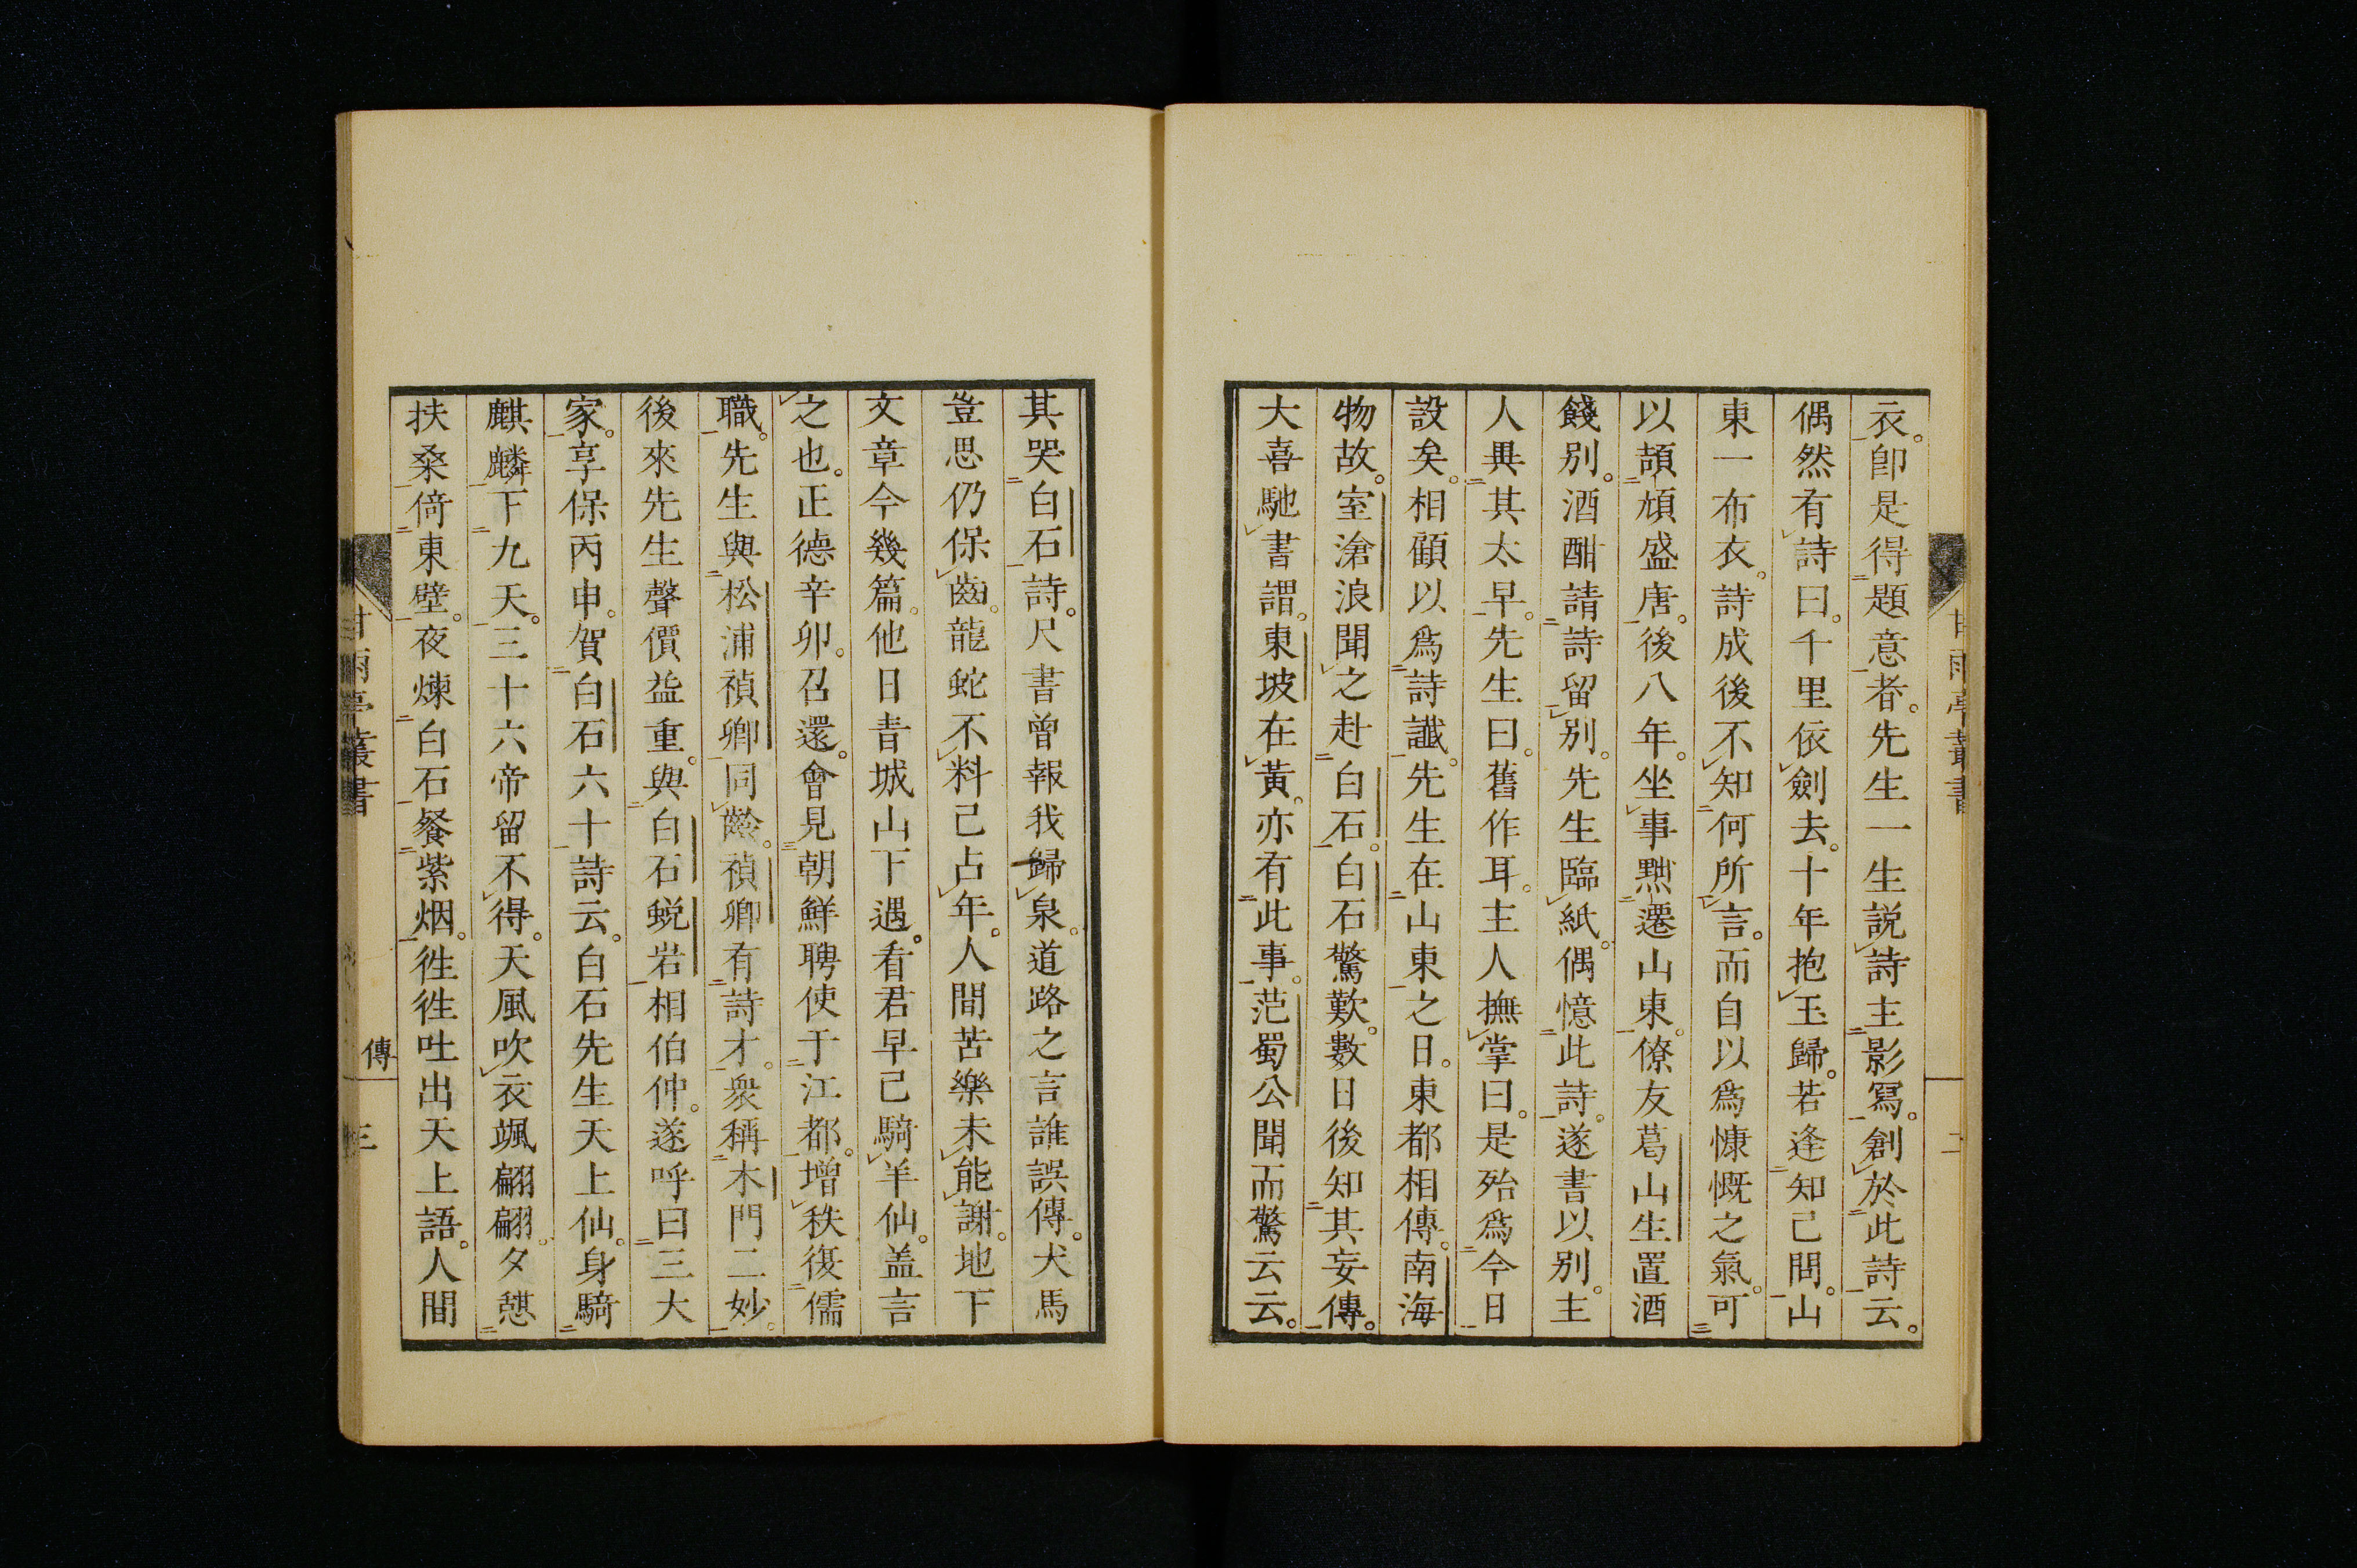 衣。卽是得題意者。先生一生説詩主影寫。創於此詩云。
偶然有詩曰。千里依劍去。十年抱玉歸。若逢知己問。山
東一布衣。詩成後不知何所言。而自以爲慷慨之氣。可
以頡頏盛唐。後八年。坐事黜遷山東。僚友葛山生置酒
餞別。酒酣請詩留別。先生臨紙。偶憶此詩。遂書以別。主
人異其太早。先生曰。舊作耳。主人撫掌曰。是殆爲今日
設矣。相顧以爲詩讖。先生在山東之日。東都相傳。南海
物故。室滄浪聞之赴白石。白石驚歎。數日後知其妄傳。
大喜馳書謂。東坡在黃。亦有此事。范蜀公聞而驚云云。
甘雨亭叢書
二
其哭白石詩。尺書曾報我歸泉。道路之言誰誤傳。犬馬
豈思仍保齒。龍蛇不料己占年。人間苦樂未能謝。地下
文章今幾篇。他日靑城山下遇。看君早已騎羊仙。盖言
之也。正德辛卯。召還。會見朝鮮聘使于江都。增秩復儒
職。先生與松浦禎卿同齡。禎卿有詩才。衆稱木門二妙。
後來先生聲價益重。與白石蛻岩相伯仲。遂呼曰三大
家。享保丙申。賀白石六十詩云。白石先生天上仙。身騎
麒麟下九天。三十六帝留不得。天風吹衣颯翩翩。夕憩
扶桑倚東壁。夜煉白石餐紫烟。徃徃吐出天上語。人間
甘雨亭叢書
傳
三